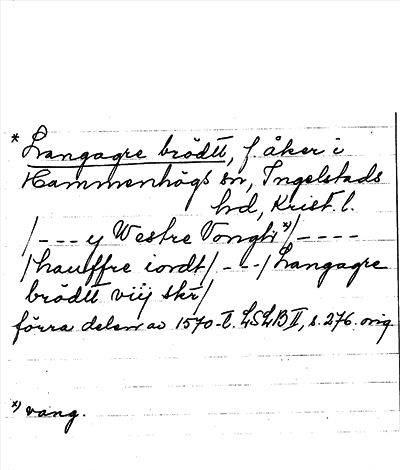 * Langagre brödtt, f. åker i
Hammenhögs sn, Ingelstads
hd, Krist. l.
/--- y Westre Vongh x)/----
/hauffre iordt/---/Langagre
brödtt viij skr/
förra delen av 1570-t. LSLB II, s. 276. orig.
x) vang.